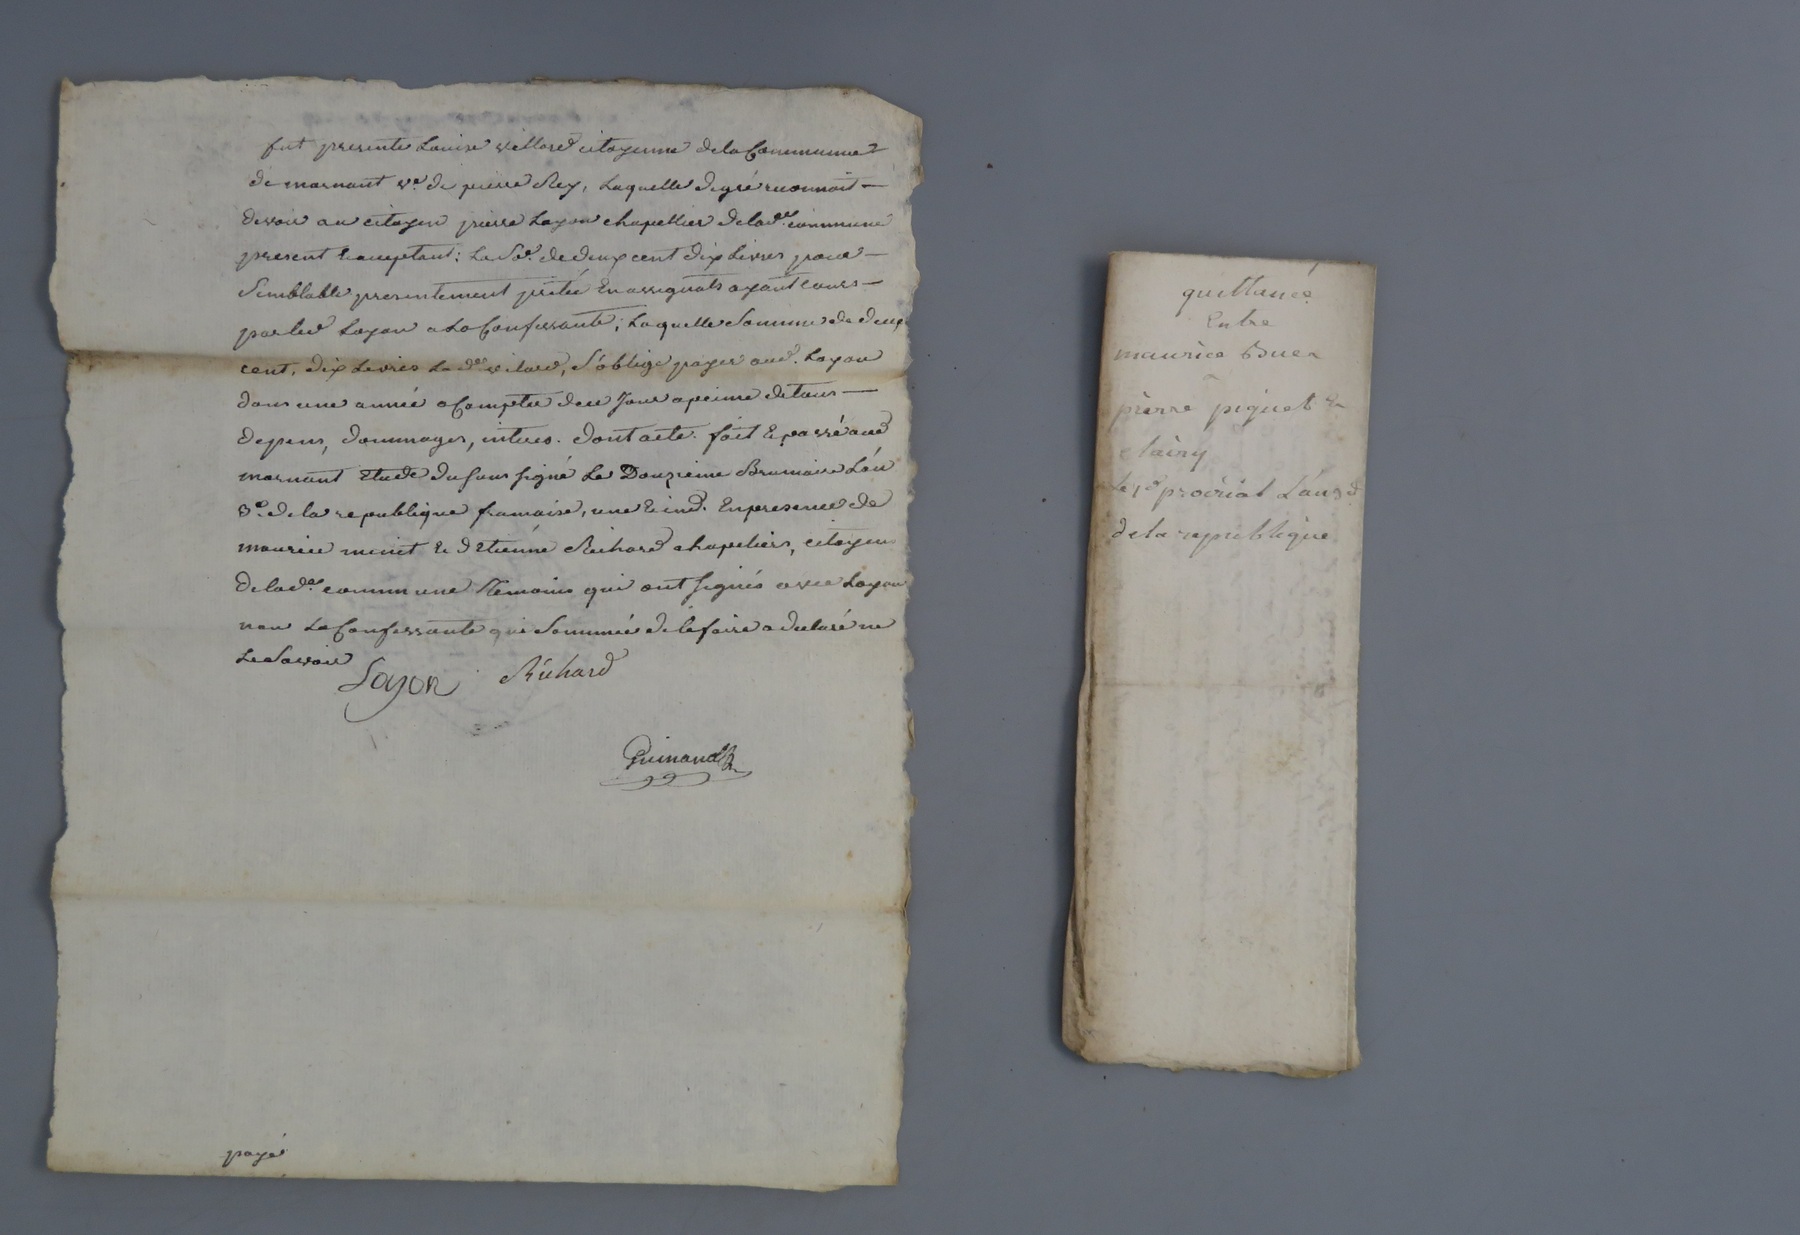 fut presente Louise villard citoyenne de la Commune
de marnant ve. de pierre Rey, Laquelle de gré reconnoit —
devoir au citoyen pierre Layon chapellier de lad.e commune
present Exceptant: La So.e de deux cent dix Livres pour —
Semblable presentement pretée En assignats ayant cours —
par led Layon a La Confessante; Laquelle Somme de deux
cent, dix Livres La de. vilard, S'oblige payer aud. Layon
dans une année a Compter de ce Jour a peine de tous —
depens, dommages, interes. dont acte. fait & passé aud
marnant Etude du sous signé Le Douzieme Brumaire L'an
3e. de la republique francaise, une & ind. En presence de
maurice minet & d'Etienne Richard chapeliers, citoyens
de lad.e commune Temoins qui ont signés avec Layon
non La Confessante qui Sommée de le faire a declaré ne
Le Savoir
Layon Richard
Guinand
payé
quittance
Entre
maurice Buer
pierre piquet &
clairy
Le prairial L'an 3e
de la republique